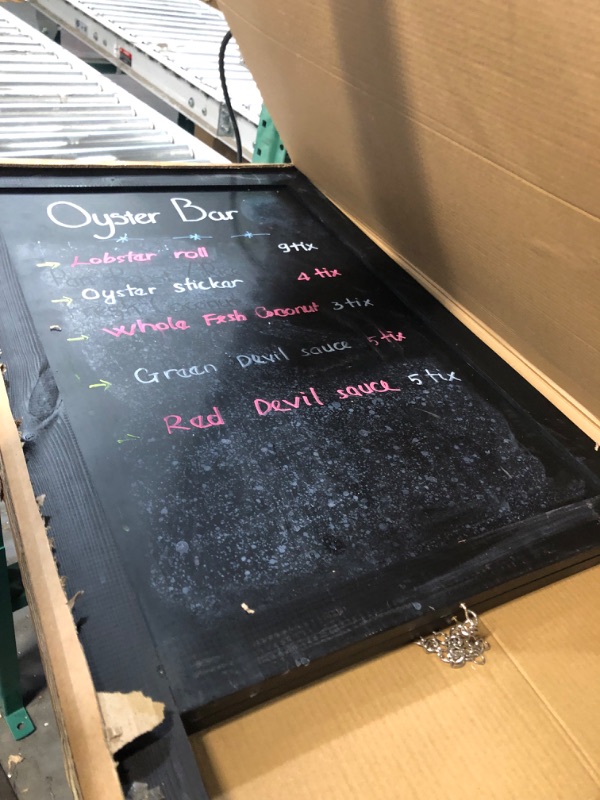 Oyster Bar
Lobster roll 9tix
Oyster sticker 4 tix
Whole Fresh Coconut 3 tix
Green Devil sauce 5 tix
Red Devil sauce 5 tix